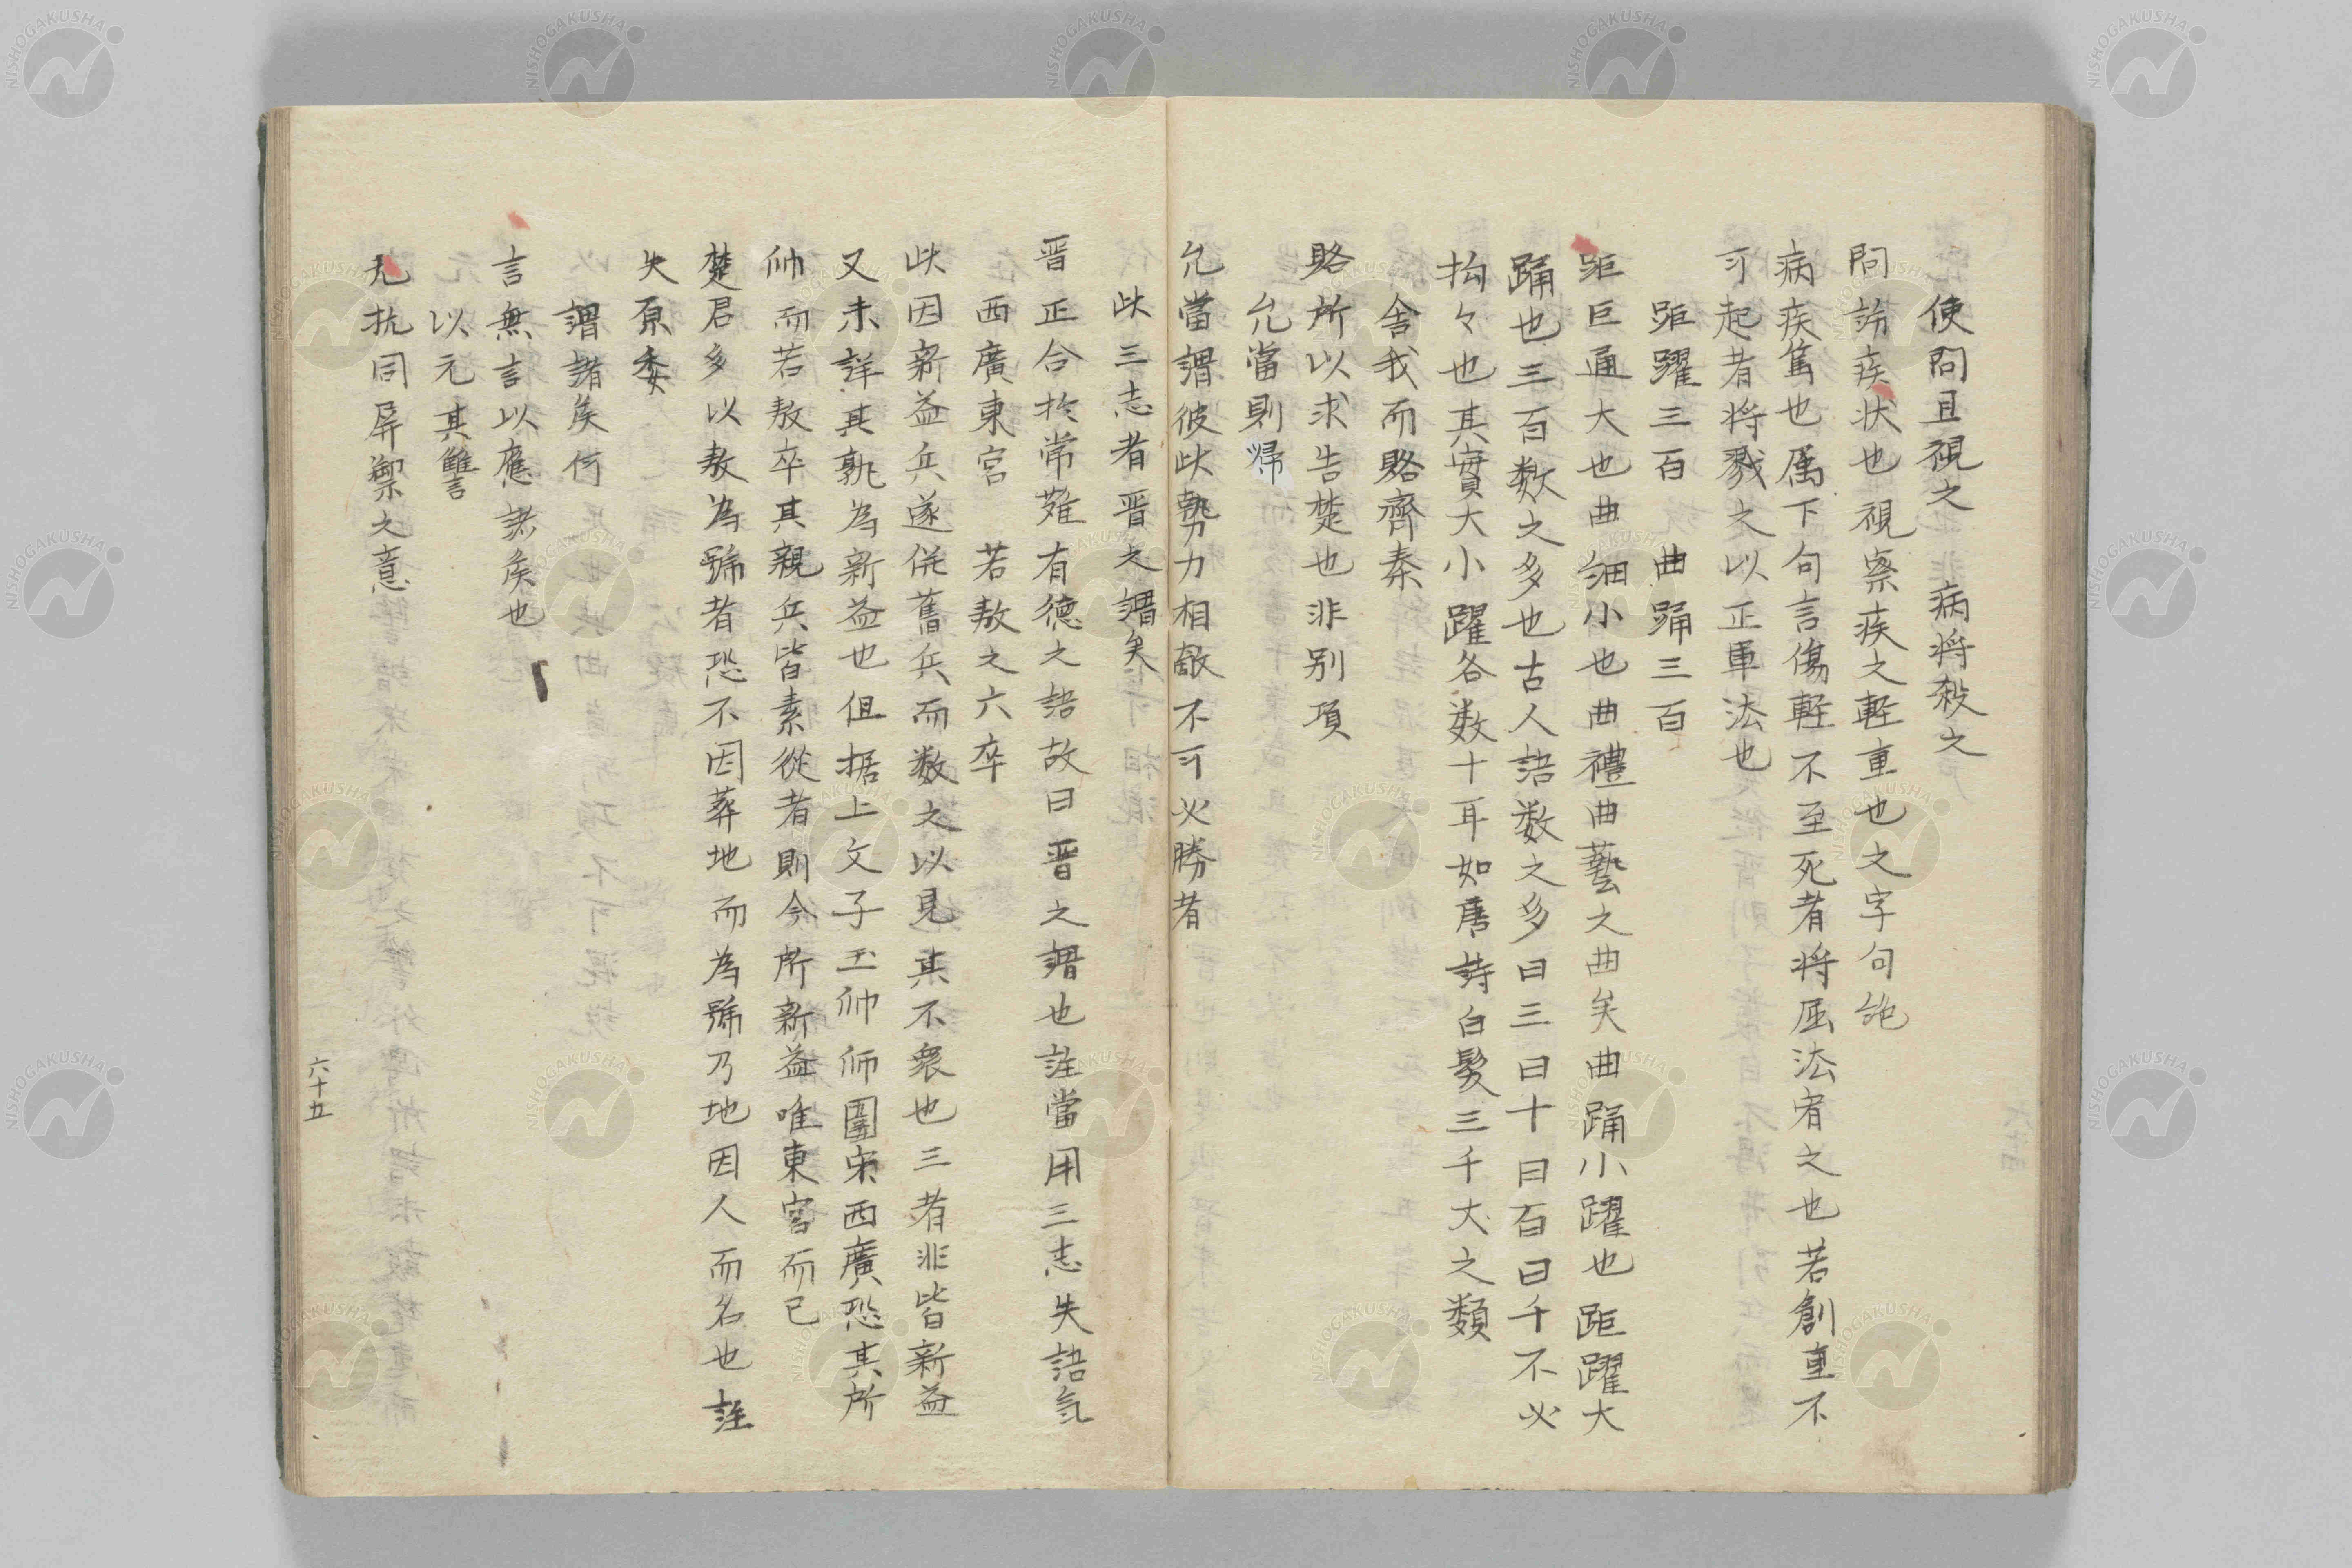 使問且視之　病将殺之
問訪疾状也視察疾之輕重也文字句絶
病疾篤也属下句言傷輕不至死者将屈法宥之也若創重不
可起者将戮之以正軍法也
距躍三百　曲踊三百
距巨通大也曲細小也曲禮曲藝之曲矣曲踊小躍也距躍大
踊也三百数之多也古人語数之多曰三曰十曰百曰千不必
拘々也其實大小躍各数十耳如唐詩白髮三千丈之類
舍我而賂齊秦
賂所以求告楚也非别項
允當則帰
允當謂彼此勢力相敵不可必勝者
此三志者晋之謂矣
晋正合於常難有德之語故曰晋之謂也註當用三志失語氣
西廣東宮　若敖之六卒
此因新益兵遂併舊兵而数之以見其不衆也三者非皆新益
又未詳其孰為新益也但据上文子玉帥師圍宋西廣恐其所
帥而若敖卒其親兵皆素從者則今所新益唯東宮而已
楚君多以敖為號者恐不因葬地而為號乃地因人而名也註
失原委
謂諸矦何
言無言以應諸矦也
以亢其讐
亢抗同屏禦之意
六十五
NISHOGAKUSHA